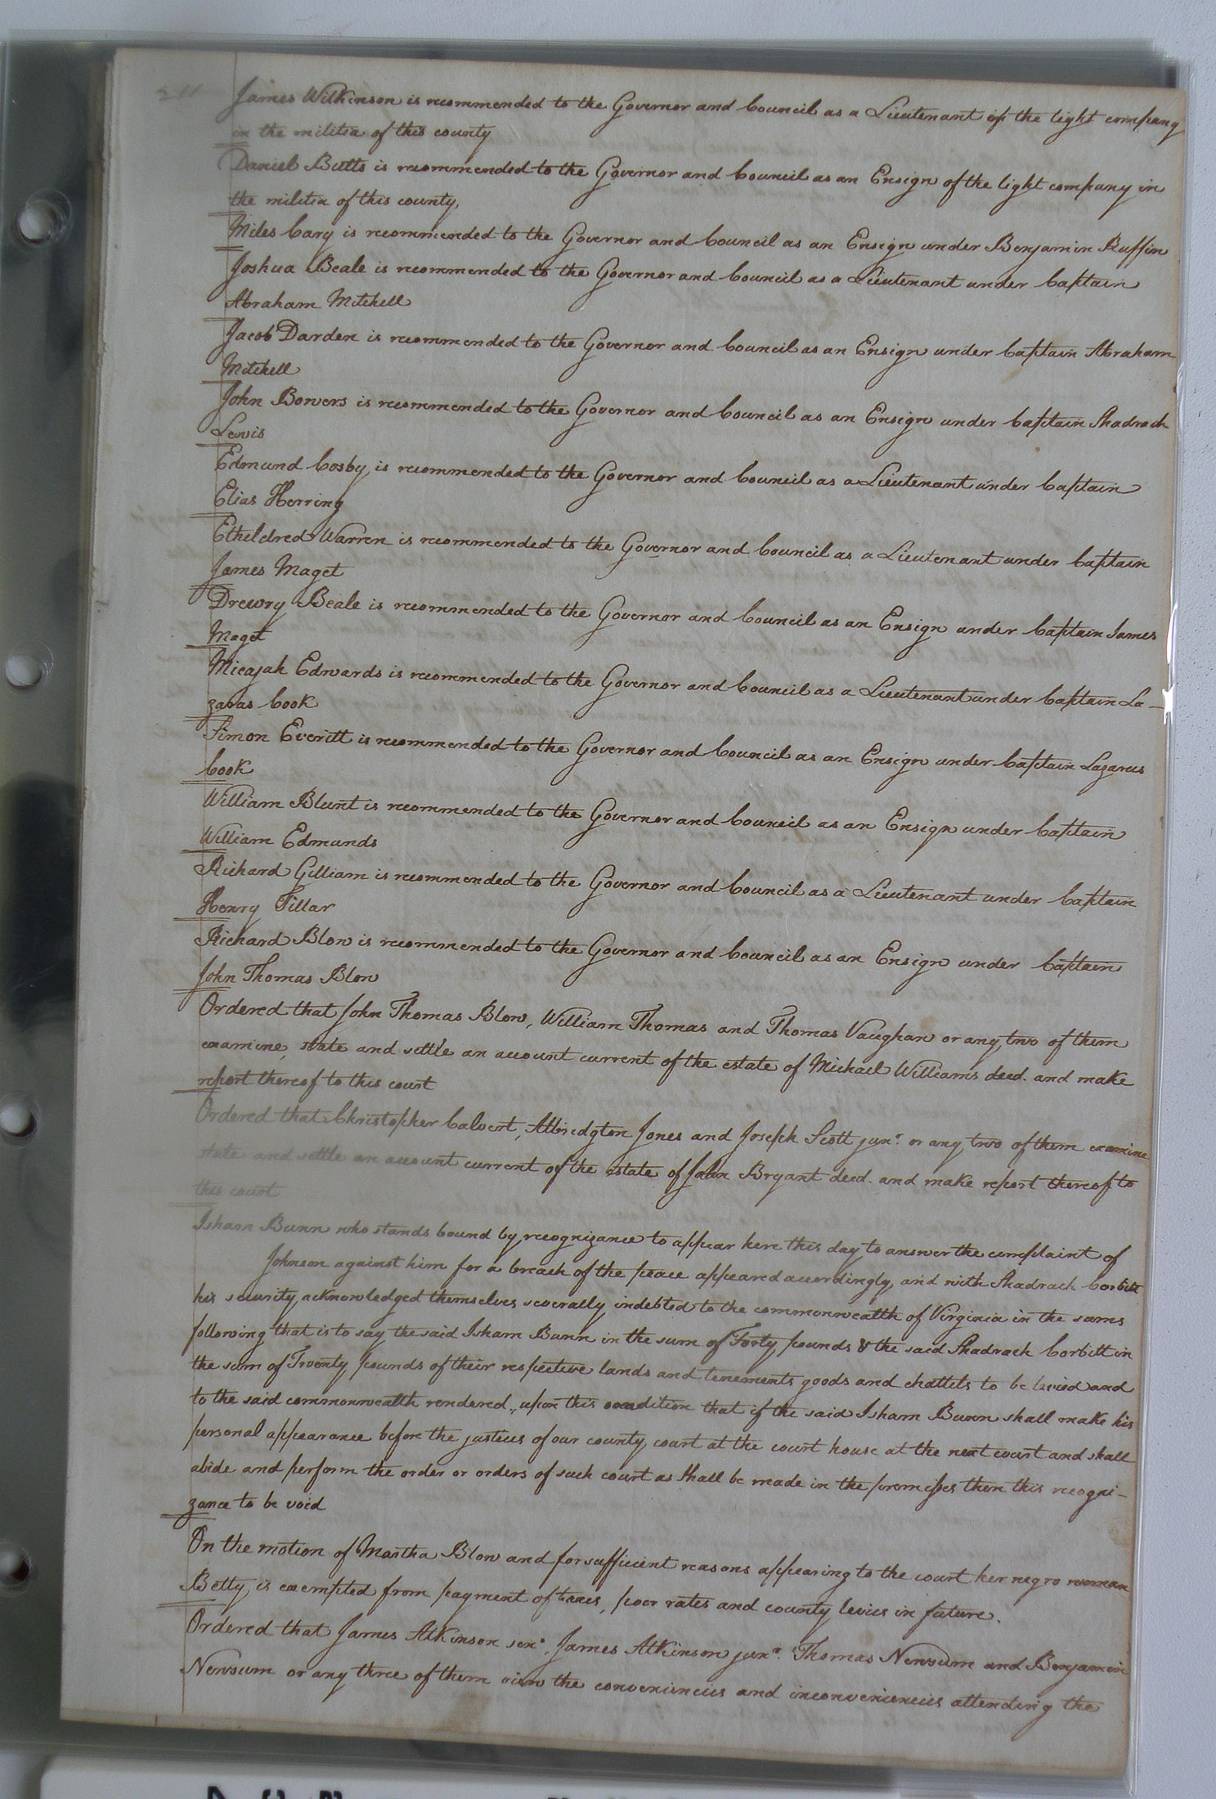 James Wilkinson is recommended to the Governor and Council as a Lieutenant of the light company
in the militia of this county
Daniel Butts is recommended to the Governor and Council as an Ensign of the light company in
the militia of this county,
Miles Cary is recommended to the Governor and Council as an Ensign under Benjamin Ruffin
Joshua Beale is recommended to the Governor and Council as a Lieutenant under Captain
Abraham Mitchell
Jacob Darden is recommended to the Governor and Council as an Ensign under Captain Abraham
Mitchell
John Bowers is recommended to the Governor and Council as an Ensign under Captain Shadrach
Lewis
Edmund Cosby, is recommended to the Governor and Council as a Lieutenant under Captain
Elias Herring
Etheldred Warren is recommended to the Governor and Council as a Lieutenant under Captain
James Maget
Drewry Beale is recommended to the Governor and Council as an Ensign under Captain James
Maget
Micajah Edwards is recommended to the Governor and Council as a Lieutenant under Captain La-
zaras Cook
Simon Everitt is recommended to the Governor and Council as an Ensign under Captain Lazarus
Cook
William Blunt is recommended to the Governor and Council as an Ensign under Captain
William Edmunds
Richard Gilliam is recommended to the Governor and Council as a Lieutenant under Captain
Henry Tillar
Richard Blow is recommended to the Governor and Council as an Ensign under Captain
John Thomas Blow
Ordered that John Thomas Blow, William Thomas and Thomas Vaughan or any two of them
examine, state and settle an account current of the estate of Michael Williams decd. and make
report thereof to this court
Ordered that Christopher Calvert, Albridgton Jones and Joseph Scott junr. or any two of them examine
state and settle an account current of the estate of John Bryant decd. and make report thereof to
this court
Isham Bunn who stands bound by recognizance to appear here this day to answer the complaint of
Johnson against him for a breach of the peace appeared accordingly, and with Shadrach Corbitt
his security, acknowledged themselves severally indebted to the commonwealth of Virginia in the sums
following that is to say the said Isham Bunn in the sum of Forty pounds & the said Shadrach Corbitt in
the sum of Twenty pounds of their respective lands and tenements goods and chattels to be levied and
to the said commonwealth rendered, upon this condition that if the said Isham Bunn shall make his
personal appearance before the justices of our county court at the court house at the next court and shall
abide and perform the order or orders of such court as shall be made in the premises then this recogni-
zance to be void
On the motion of Martha Blow and for sufficient reasons appearing to the court her negro woman
Betty, is exempted from payment of taxes, poor rates and county levies in future.
Ordered that James Atkinson senr. James Atkinson junr. Thomas Newsum and Benjamin
Newsum or any three of them view the conveniencies and inconveniencies attending the